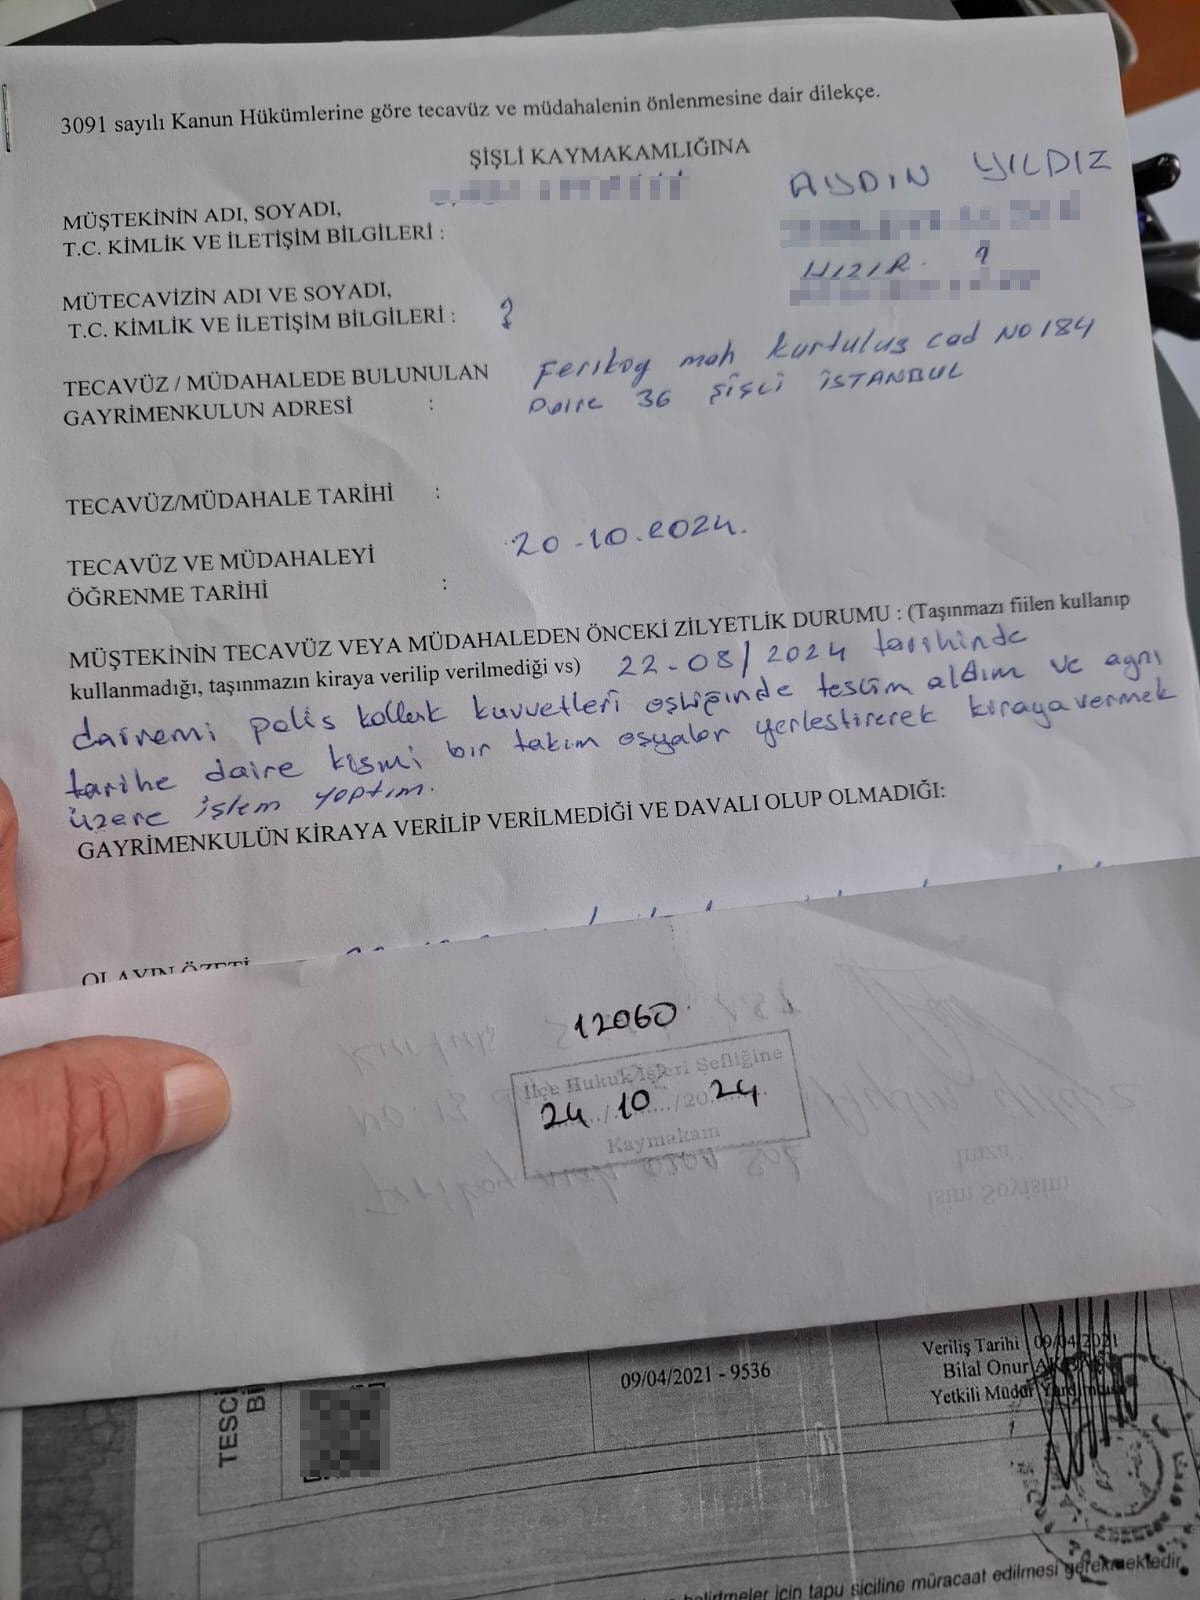 3091 sayılı Kanun Hükümlerine göre tecavüz ve müdahalenin önlenmesine dair dilekçe.
ŞİŞLİ KAYMAKAMLIĞINA
AYDIN YILDIZ
MÜŞTEKİNİN ADI, SOYADI,
T.C. KİMLİK VE İLETİŞİM BİLGİLERİ :
HIZIR. ?
MÜTECAVİZİN ADI VE SOYADI,
T.C. KİMLİK VE İLETİŞİM BİLGİLERİ : ?
TECAVÜZ / MÜDAHALEDE BULUNULAN
GAYRİMENKULUN ADRESİ :
Ferikoy mah Kurtuluş cad NO 184
Daire 36 ŞİŞLİ İSTANBUL
TECAVÜZ/MÜDAHALE TARİHİ :
TECAVÜZ VE MÜDAHALEYİ
ÖĞRENME TARİHİ :
20-10.2024.
MÜŞTEKİNİN TECAVÜZ VEYA MÜDAHALEDEN ÖNCEKİ ZİLYETLİK DURUMU : (Taşınmazı fiilen kullanıp
kullanmadığı, taşınmazın kiraya verilip verilmediği vs) 22-08/2024 tarihinde
dairemi polis kolluk kuvvetleri eşliğinde teslim aldım ve aynı
tarihe daire kismi bir takım eşyalar yerleştirerek kirayavermek
üzere işlem yaptım.
GAYRİMENKULÜN KİRAYA VERİLİP VERİLMEDİĞİ VE DAVALI OLUP OLMADIĞI:
OLAYIN ÖZETİ
12060
İlçe Hukuk İşleri Şefliğine
24/10/2024
Kaymakam
İsim Soyisim
İmza
TESCİ
Bİ
09/04/2021 - 9536
Veriliş Tarihi 09/04/2021
Bilal Onur
Yetkili Müdür
için tapu siciline müracaat edilmesi gerekmektedir.